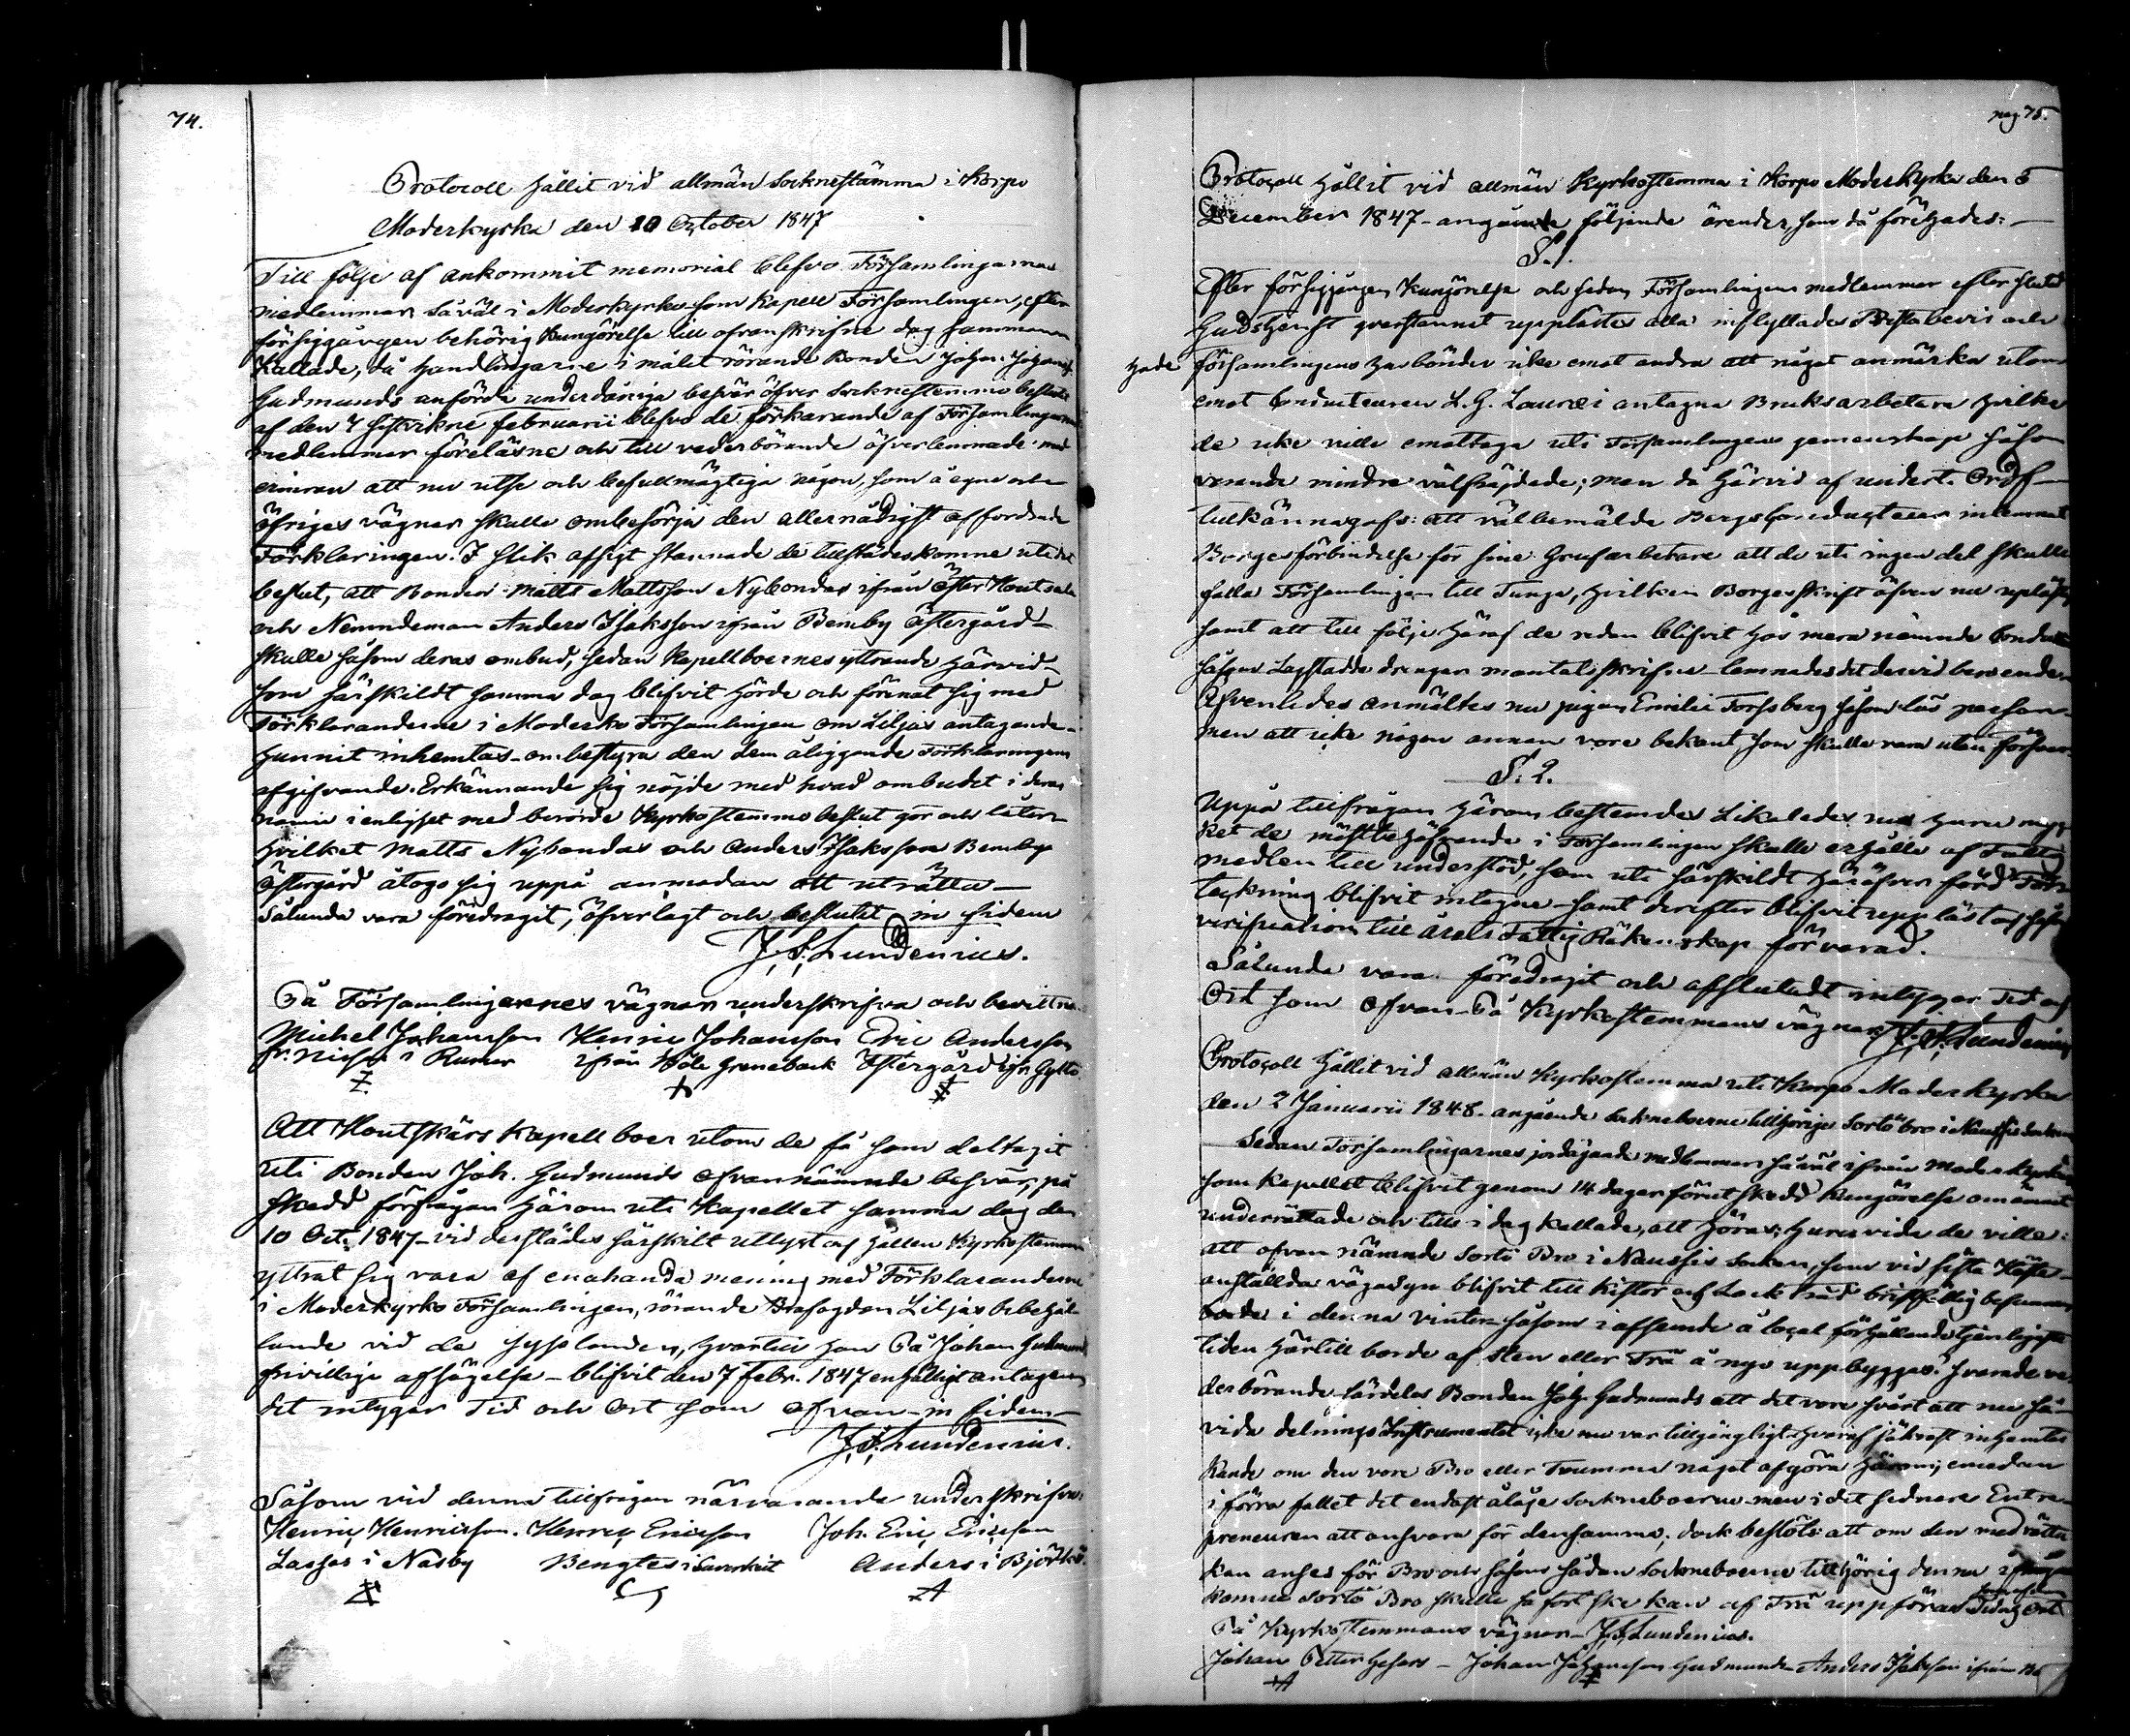 74.
Protocoll hållit vid allmän Socknestämma i Korpo
Moderkyrka den 10 October 1847
Till följe af ankommit memorial blefvo Församlingarnas
medlemmar såväl i Moderkyrko som Kapell Församlingen, efter
försiggången behörig Kungörelse till ofvanskrifne dag samman
kallade, då handlingarne i målet rörande Bonden Johan Johans:
Gudmunds anförda underdåniga besvär öfver Socknestemmo beslutet
af den 7 sistvikne Februarii blefvo de förklarande af Församlingarnas
medlemmar föreläsne och till vederbörande öfverlemnade med
erinran att nu utse och befullmägtiga någon, som å egne och
öfriges vägnar skulle ombesörja den allernådigst affordrade
Förklaringen. I slik afsigt stannade de tillstädeskomne uti det
beslut, att Bonden Matts Mattsson Nybondas ifrån Öster Houtskär
och Nemndeman Anders Isaksson ifrån Benby Östergård
skulle såsom deras ombud, sedan Kapellboernes yttrande härvid
som särskildt samma dag blifvit hörde och förenat sig med
Förklaranderne i Moderko Församlingen om Liljas antagande
hunnit inhemtas ombestyra den dem åliggande Förklaringens
afgifvande. Erkännande sig nöjde med hvad ombudet i deras
namn i enlighet med berörde Kyrkostemmo beslut gör och låter
hvilket Matts Nybondas och Anders Isaksson Benby
Östergård åtogo sig uppå anmodan att uträtta
Sålunda vara föredragit, öfverlagt och beslutet in fidem
J. S. Lundenius.
På Församlingarnes vägnar underskrifva och bevittna.
Michel Johansson Henric Johansson Eric Andersson
fr. Nissas i Rumar ifrån Wåle Greneback Östergård ifr. Gyltö
Att Houtskärs Kapellboer utom de få som deltagit
uti Bonden Joh. Gudmunds ofvannämnde besvär, på
skedd förfrågan härom uti Kapellet samma dag den
10 Oct. 1847 vid derstädes särskilt utlyst och hållen Kyrkostemma
yttrat sig vara af enahanda mening med Förklaranderne
i Moderkyrko Församlingen, rörande Brofogden Liljas bibehål
lande vid de sysslanden, hvartill han På Johan Gudmunds
frivillige afsägelse blifvit den 7 Febr. 1847 enhälligt antagen,
det intygar Tid och Ort som ofvan in fidem
J. S. Lundenius.
Såsom vid denna tillfrågan närvarande underskrifva
Henric Henricsson. Henric Ericsson Joh. Eric Ericsson
Lassas i Näsby Bengtes i Saverkeit Anders i Björkö
pag 75.
Protocoll hållit vid allmän Kyrkostemma i Korpo Moderkyrka den 5
December 1847 angående följande ärender, som då förehades:
§. 1.
Efter försiggången Kungörelse och sedan Församlingens medlemmar efter slutad
Gudstjenst qvarstannat upplästes alla inflyttades Prestabevis och
hade Församlingens husbönder icke emot andra att något anmärka utom
emot Conducteuren L. G. Laurei antagna Bruksarbetare hvilka
de icke ville emottaga uti Församlingens gemenskap såsom
varande mindre välfräjdade; men då härvid af undert. Ordf
tillkännagafs: att välbemälde Bergsconducteur inlemnat
Borgesförbindelse för sine Grufarbetare att de uti ingen del skulle
falla Församlingen till Tunga, hvilken Borgesskrift äfven nu upläses
samt att till följe häraf de redan blifvit hos mera nämnde Conducteur
såsom Lagstadde drenger mantalsskrifne lemnades det dervid beroende
Äfvenledes anmältes nu pigan Emilie Forssberg såsom lös person
men att icke någon annan vore bekant som skulle vara utan försvar
§. 2.
Uppå tillfrågan härom bestemdes Likaledes nu huru myc
ket de måst behöfvande i Församlingen skulle erhålla af Fattig
medlen till understöd, som uti särskildt häröfver förd För
teckning blifvit intagne samt derefter blifvit uppläst och såsom
verification till årets Fattig Räkenskap förvarad.
Sålunda vara föredragit och afslutadt intygar Tid och
Ort som ofvan På Kyrkostemmans vägnar J. S. Lundenius
Protocoll hållit vid allmän Kyrkostemma uti Korpo Moderkyrka
den 2 Januarii 1848. angående Sockneboerne tillhörige Sortö bro i Naussis Socken
Sedan Församlingarnes jordägande medlemmar såväl ifrån Moderkyrkan
som Kapellet blifvit genom 14 dagar förut skedd Kungörelse om ämnet
underrättade och till i dag kallade, att höras; huruvida de ville:
att ofvan nämnde Sortö Bro i Naussis Socken, som vid sista Höste
anställda vägasyn blifvit till kistor och Lock träd bristfällig befunnen
borde i denna vinter såsom i afseende å local förhållande tjenligaste
tiden härtill borde af sten eller Trä å nyo uppbyggas? svarade ve
derbörande särdeles Bonden Joh. Gudmunds att det vore svårt att nu så
vida delnings Instrumentet icke nu var tillgängligt hvaraf säkrast inhemtas
kunde om den vore Bro eller Trumma något afgöra härom; emedan
i förra fallet det endast åläge Sockneboerne men i det sednare Entre
preneuren att ansvara för densamma; dock beslöts att om den med rätta
kan anses för Bro och såsom sådan Sockneboerne tillhörig denna
komna Sortö Bro skulle så fort ske kan af Trä uppföras Tid och Ort
På Kyrkostemmans vägnar J. S. Lundenius.
Johan Petter Gesers - Johan Johansson Gudmunds Anders Isaksson ifrån Be